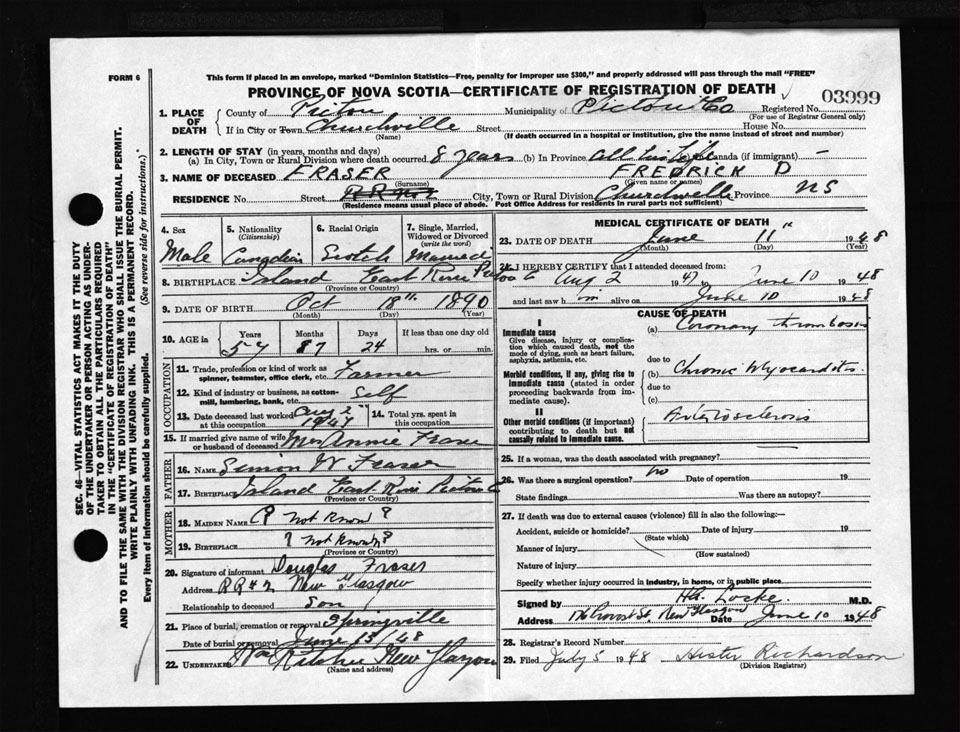 FORM 6
This form if placed in an envelope, marked "Dominion Statistics—Free, penalty for improper use $300," and properly addressed will pass through the mail "FREE"
PROVINCE OF NOVA SCOTIA—CERTIFICATE OF REGISTRATION OF DEATH
03999
1. PLACE OF DEATH County of Pictou Municipality of Pictou Co Registered No.
(For use of Registrar General only)
If in City or Town Churchville Street House No.
(Name) (If death occurred in a hospital or institution, give the name instead of street and number)
2. LENGTH OF STAY (in years, months and days)
(a) In City, Town or Rural Division where death occurred 8 years (b) In Province all his life Canada (if immigrant) -
3. NAME OF DECEASED FRASER FREDRICK D
(Surname) (Given name or names)
RESIDENCE No. Street City, Town or Rural Division Churchville Province NS
(Residence means usual place of abode. Post Office Address for residents in rural parts not sufficient)
4. Sex 5. Nationality (Citizenship) 6. Racial Origin 7. Single, Married, Widowed or Divorced (write the word)
Male Canadian Scotch Married
8. BIRTHPLACE Island East River Pictou Co
(Province or Country)
9. DATE OF BIRTH Oct 18" 1890
(Month) (Day) (Year)
10. AGE in Years Months Days If less than one day
57 24 hrs. or min.
OCCUPATION
11. Trade, profession or kind of work as spinner, teamster, office clerk, etc. Farmer
12. Kind of industry or business, as cotton-mill, lumbering, bank, etc. Self
13. Date deceased last worked at this occupation Aug 2 1947 14. Total yrs. spent in this occupation
15. If married give name of wife or husband of deceased Mrs Annie Fraser
FATHER
16. NAME Simon W Fraser
17. BIRTHPLACE Island East River Pictou Co
(Province or Country)
MOTHER
18. MAIDEN NAME ? Not Know ?
19. BIRTHPLACE ? Not Known ?
(Province or Country)
20. Signature of informant Douglas Fraser
Address RR#2 New Glasgow
Relationship to deceased Son
21. Place of burial, cremation or removal Springville
Date of burial or removal June 13/48
22. UNDERTAKER Ritchie New Glasgow
(Name and address)
MEDICAL CERTIFICATE OF DEATH
23. DATE OF DEATH June 11" 1948
(Month) (Day)
24. I HEREBY CERTIFY that I attended deceased from:
Aug 2 1947 June 10 1948
and last saw him alive on June 10 1948
CAUSE OF DEATH
I
Immediate cause
Give disease, injury or complication which caused death, not the mode of dying, such as heart failure, asphyxia, asthenia, etc.
(a) Coronary thrombosis
due to
Morbid conditions, if any, giving rise to immediate cause (stated in order proceeding backwards from immediate cause).
(b) Chronic Myocarditis
due to
(c)
II
Other morbid conditions (if important) contributing to death but not causally related to immediate cause.
Arteriosclerosis
25. If a woman, was the death associated with pregnancy?
26. Was there a surgical operation? no Date of operation 19
State findings Was there an autopsy?
27. If death was due to external causes (violence) fill in also the following:—
Accident, suicide or homicide? Date of injury 19
(State which)
Manner of injury
(How sustained)
Nature of injury
Specify whether injury occurred in industry, in home, or in public place
Signed by Locke. M.D.
Address Provost St. New Glasgow Date June 10 1948
28. Registrar's Record Number
29. Filed July 5 1948 Hester Richardson
(Division Registrar)
SEC. 46—VITAL STATISTICS ACT MAKES IT THE DUTY
OF THE UNDERTAKER OR PERSON ACTING AS UNDER-
TAKER TO OBTAIN ALL THE PARTICULARS REQUIRED
IN THE "CERTIFICATE OF REGISTRATION OF DEATH"
AND TO FILE THE SAME WITH THE DIVISION REGISTRAR WHO SHALL ISSUE THE BURIAL PERMIT.
WRITE PLAINLY WITH UNFADING INK. THIS IS A PERMANENT RECORD.
Every item of information should be carefully supplied. (See reverse side for instructions.)